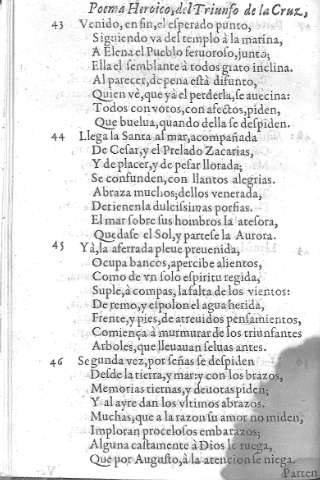 Poema Heroico, del Triunfo de la Cruz,
43 Venido, en fin, el esperado punto,
Siguiendo va del templo à la marina,
A Elena el Pueblo feruoroso, junto;
Ella el semblante à todos grato inclina.
Al parecer, de pena està difunto,
Quien vè, que yà el perderla, se auecina:
Todos con votos, con afectos, piden,
Que buelua, quando della se despiden.
44 Llega la Santa al mar, acompañada
De Cesar, y el Prelado Zacarias,
Y de placer, y de pesar llorada;
Se confunden, con llantos alegrias.
Abraza muchos; dellos venerada,
Detienenla dulcissimas porfias.
El mar sobre sus hombros la atesora,
Quedase el Sol, y partese la Aurora.
45 Yà, la aferrada pleue preuenida,
Ocupa bancos, apercibe alientos,
Como de vn solo espiritu regida,
Suple, à compas, la falta de los vientos:
De remo, y espolon el agua herida,
Frente, y pies, de atreuidos pensamientos,
Comiença à murmurar de los triunfantes
Arboles, que lleuauan seluas antes.
46 Segunda vez, por señas se despiden
Desde la tierra, y mar: y con los brazos,
Memorias tiernas, y deuotas piden;
Y al ayre dan los vltimos abrazos.
Muchas, que a la razon su amor no miden,
Imploran procelosos embarazos;
Alguna castamente à Dios le ruega,
Que por Augusto, à la atencion se niega.
Parten